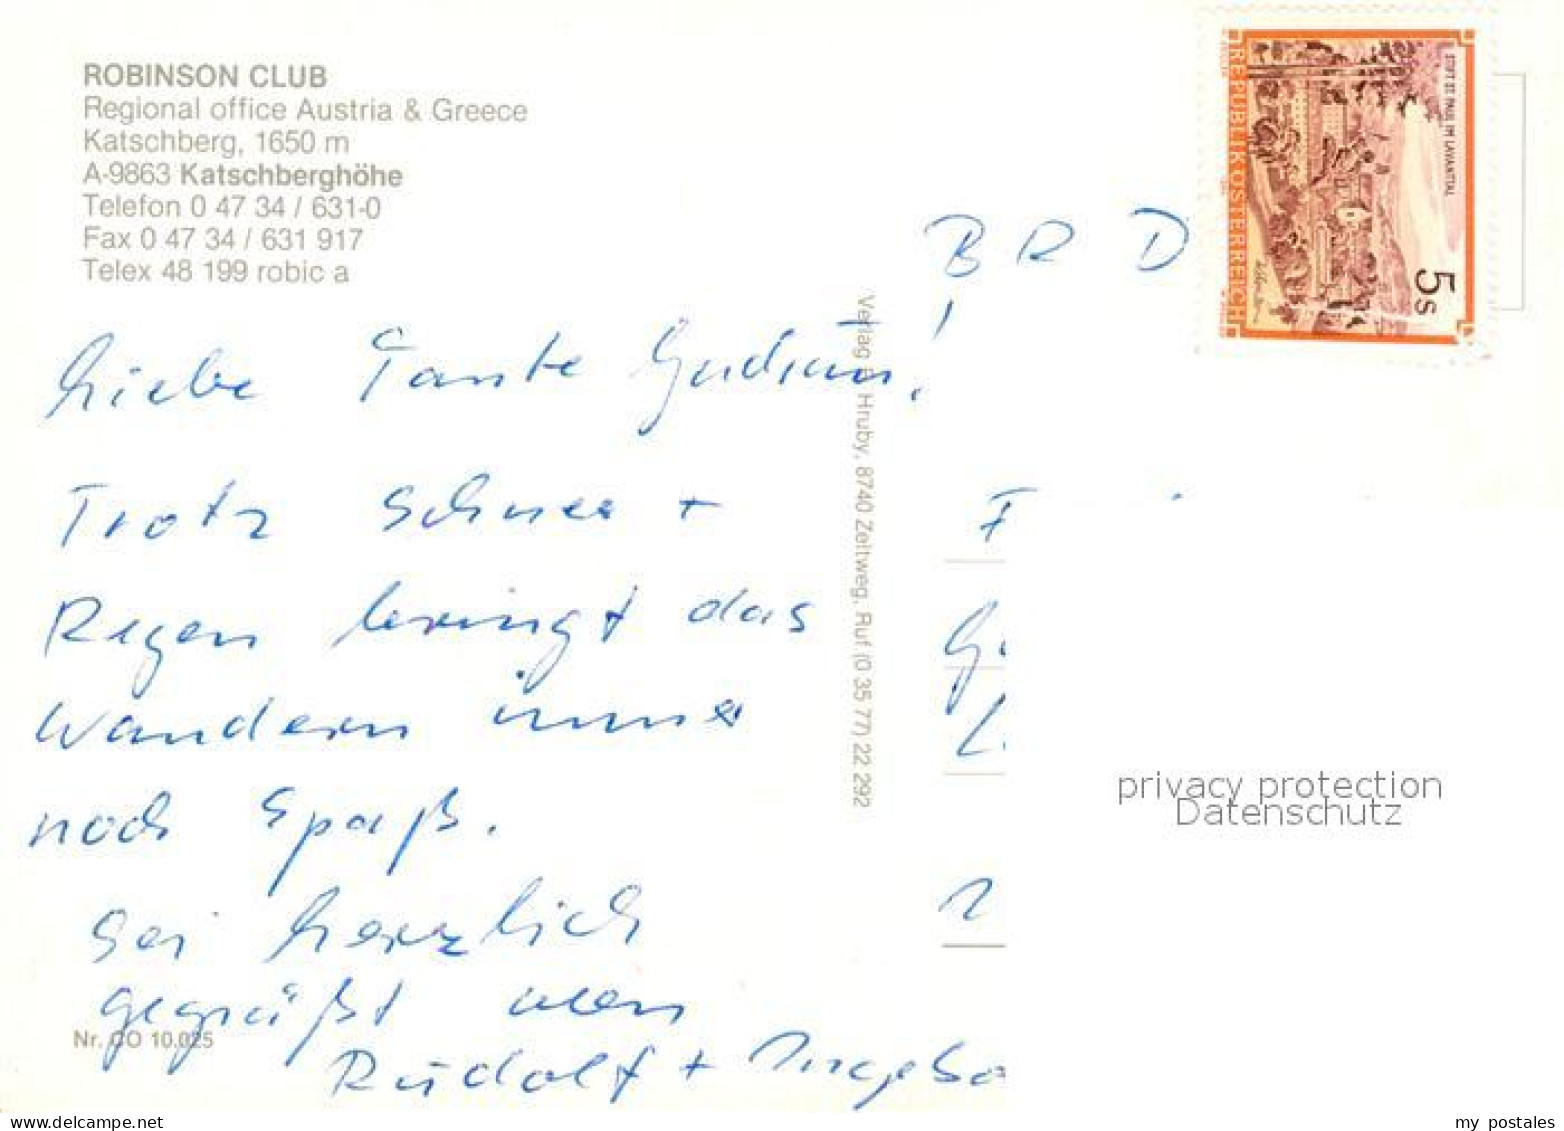 ROBINSON CLUB
Regional office Austria & Greece
Katschberg, 1650 m
A-9863 Katschberghöhe
Telefon 0 47 34 / 631-0
Fax 0 47 34 / 631 917
Telex 48 199 robic a
Liebe Tante Gudrun!
Trotz Schnee +
Regen bringt das
Wandern immer
noch Spaß.
Sei herzlich
gegrüßt von
Rudolf + Ingebo
Nr. CO 10.025
Verlag Hruby, 8740 Zeltweg, Ruf (0 35 77) 22 292
BRD
REPUBLIK ÖSTERREICH
STIFT ST. PAUL IM LAVANTTAL
5s
F
G
L
privacy protection
Datenschutz
my postales